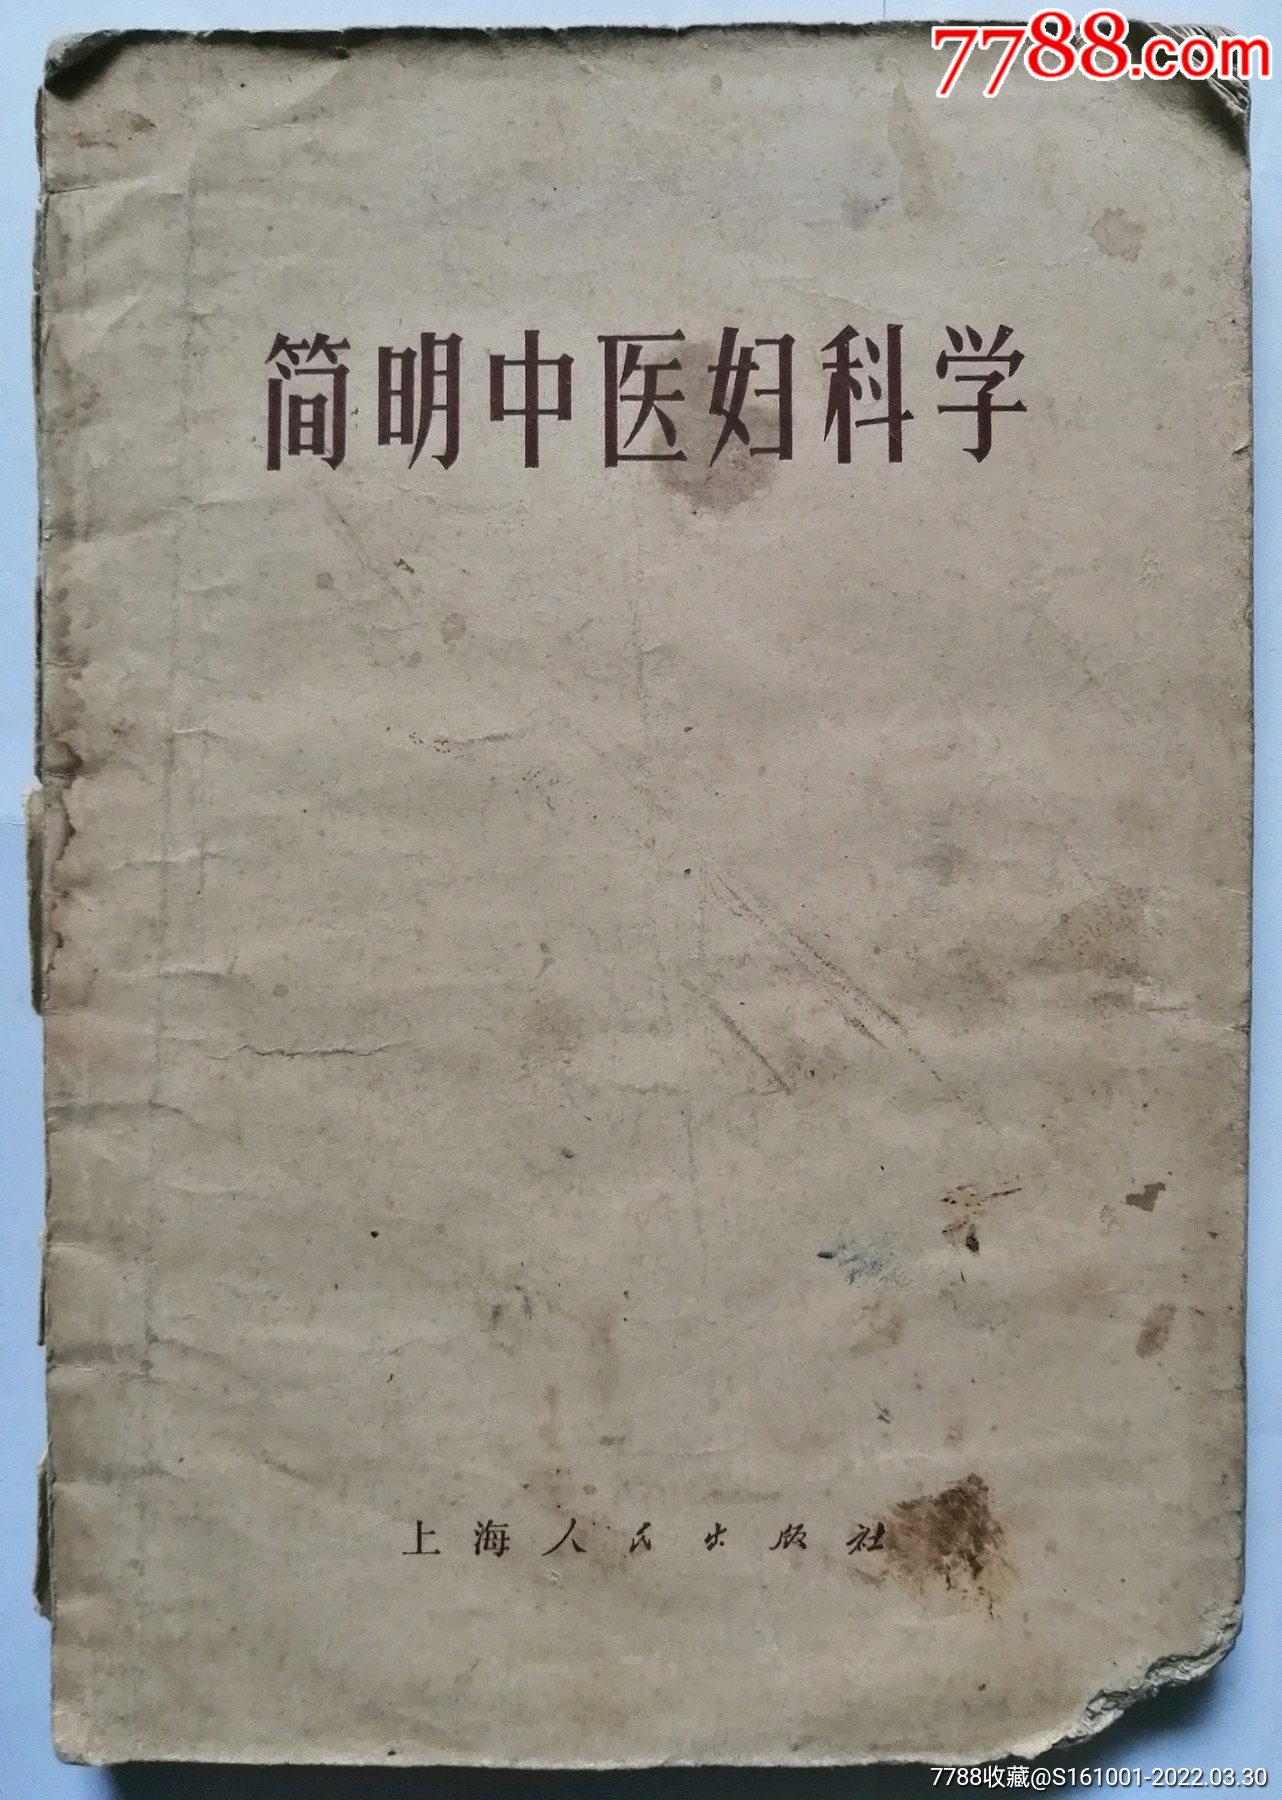 7788.com
简明中医妇科学
上海人民出版社
7788收藏@S161001-2022.03.30